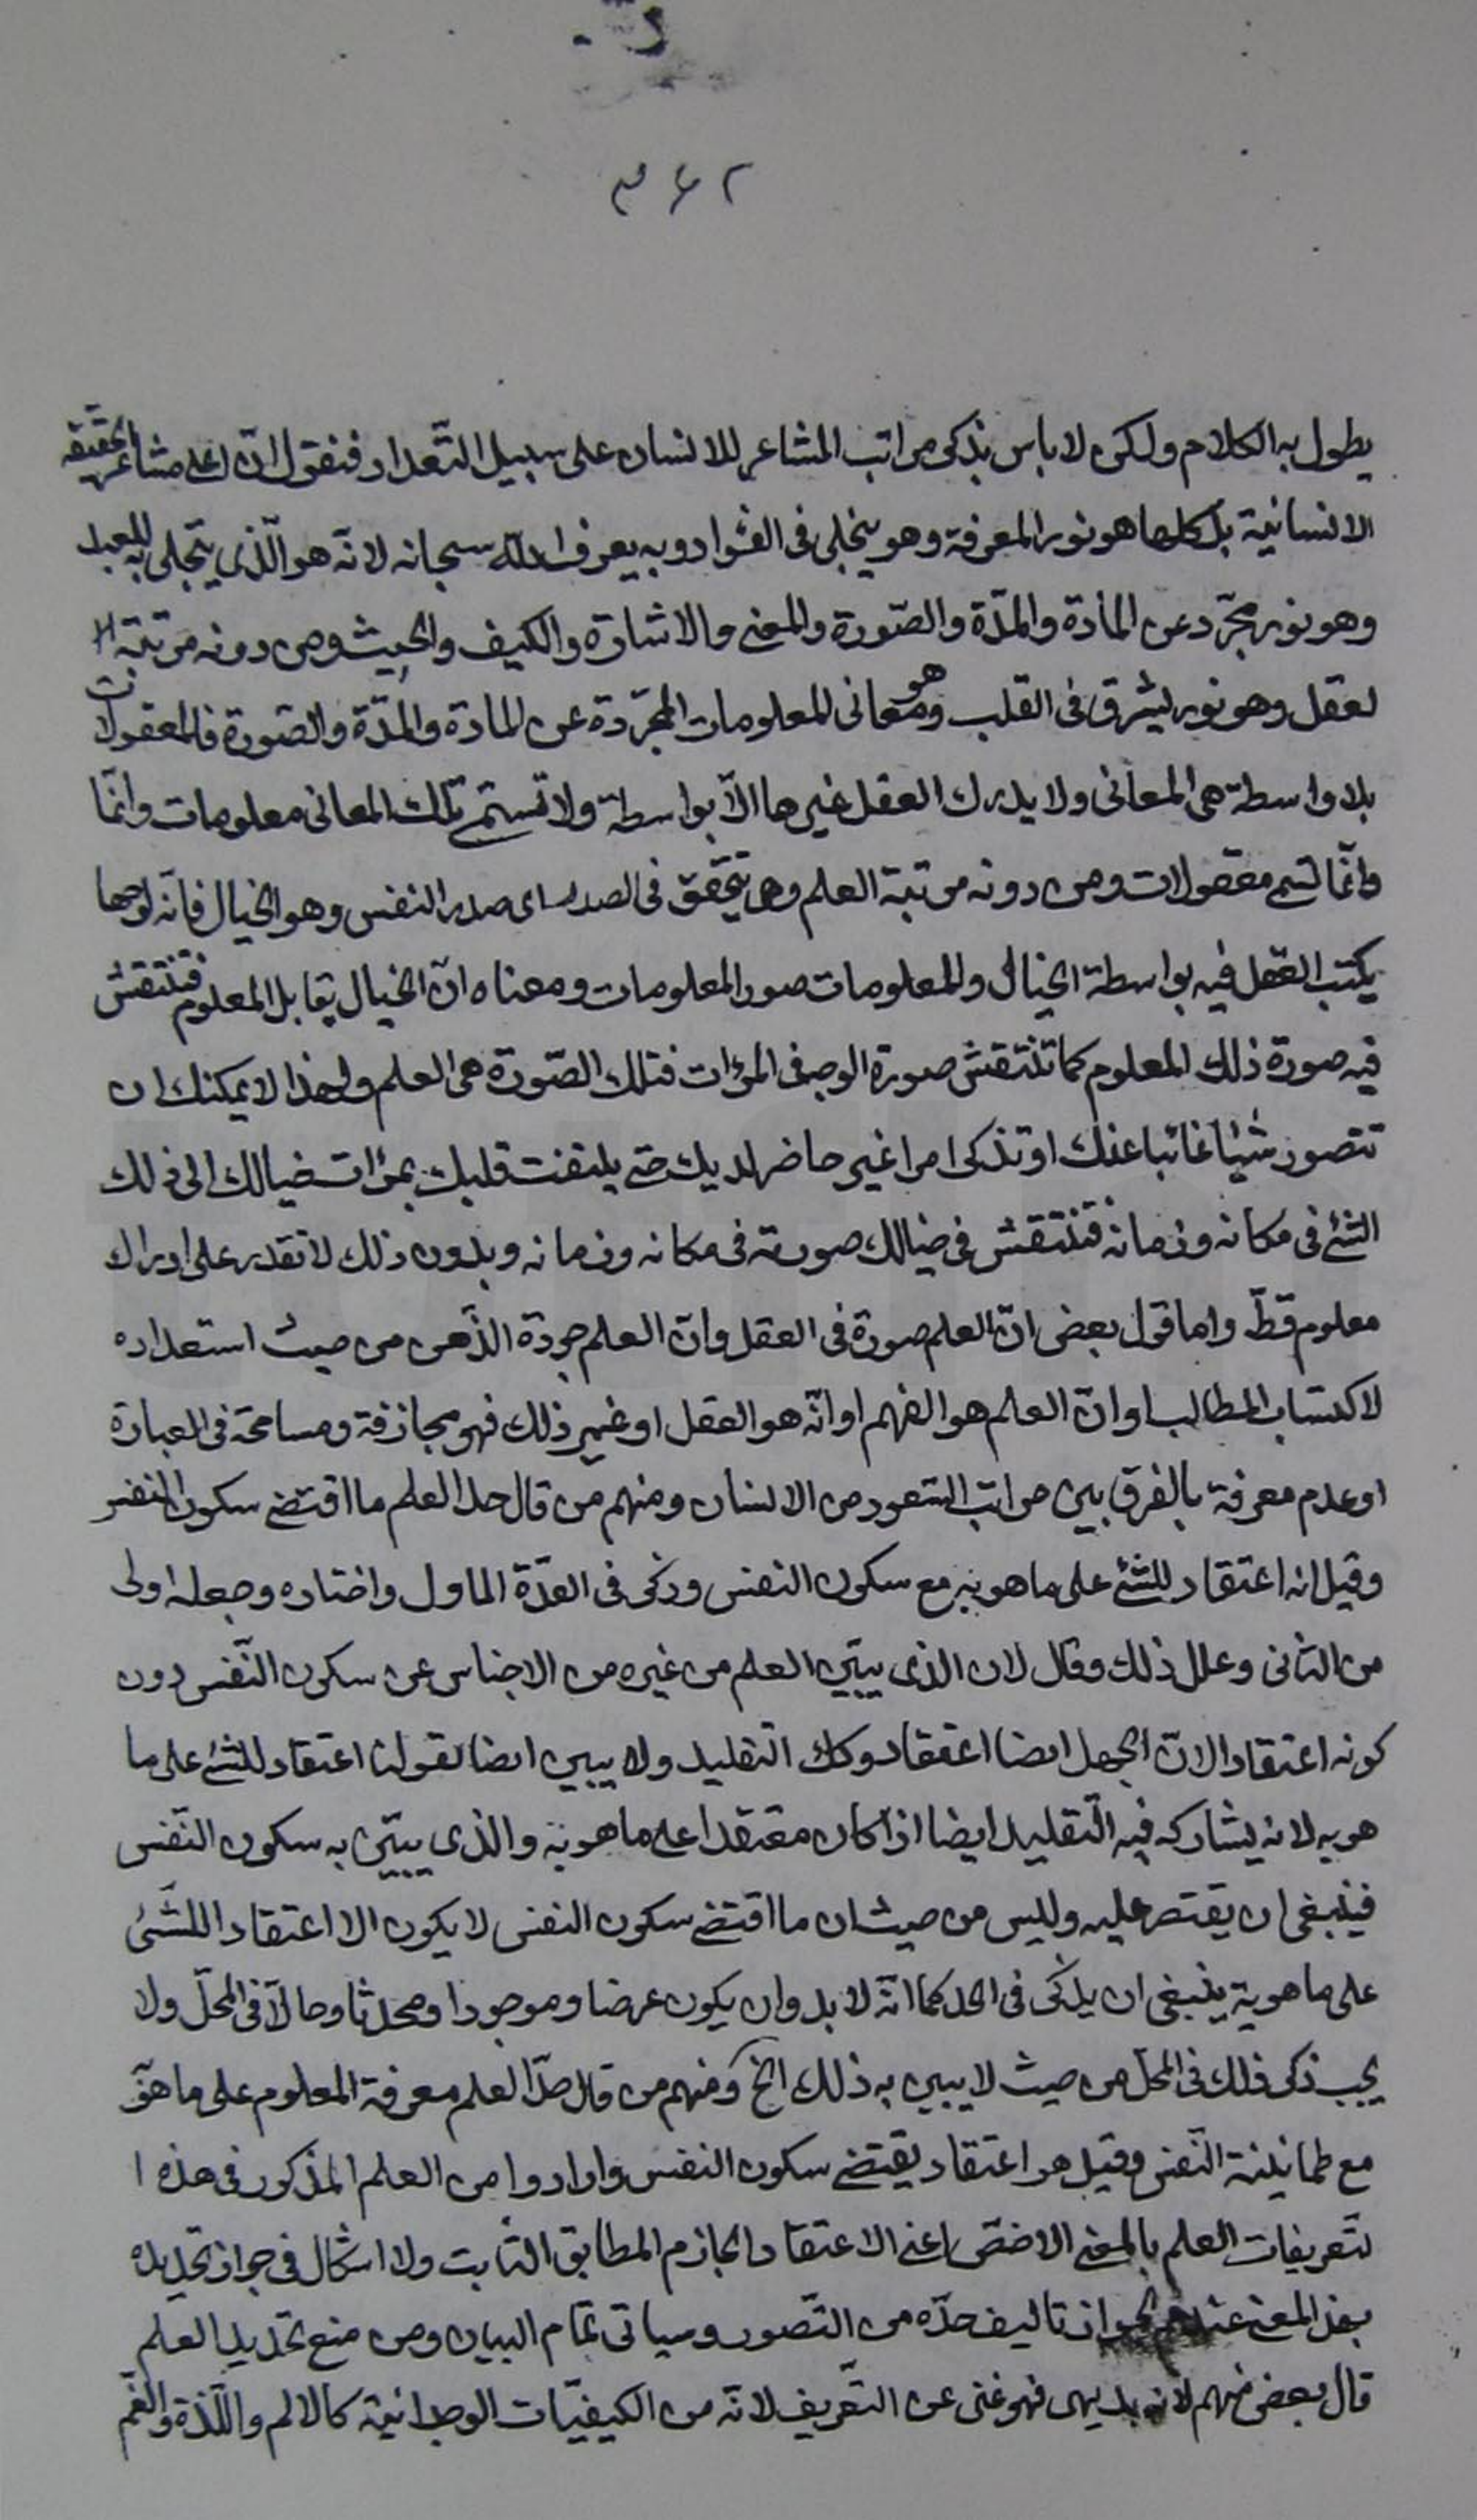 ٣٦٢
يطول به الكلام ولكن لا باس بذكر مراتب المشاعر للانسان على سبيل التّعداد فنقول انّ اعلى مشاعر الحقيقة
الانسانية بل كلها هو نور المعرفة وهو يتجلى فى الفؤاد وبه يعرف الله سبحانه لانّه هو الّذى يتجلى به للعبد
وهو نور مجرّد عن المادّة والمدّة والصّورة والمعنى والاشارة والكيف والحيث ومن دونه مرتبة ا
لعقل وهو نور يشرق فى القلب وهو معانى المعلومات المجرّدة عن المادة والمدّة والصّورة فالمعقولات
بلا واسطة هى المعانى ولا يدرك العقل غيرها الّا بواسطة ولا تسمّى تلك المعانى معلومات وانّما
وانّما تسمى معقولات ومن دونه مرتبة العلم وهى يتحقق فى الصدر اى صدر النفس وهو الخيال فانّه لوحها
يكتب العقل فيه بواسطة الخيال والمعلومات صور المعلومات ومعناه انّ الخيال يقابل المعلوم فتنتقش
فيه صورة ذلك المعلوم كما تنتقش صورة الوجه فى المرات فتلك الصّورة هى العلم ولهذا لا يمكنك ان
تتصور شيئا غائبا عنك او تذكر امرا غير حاضر لديك حتى يلتفت قلبك بمرات خيالك الى ذلك
الشئ فى مكانه وزمانه فتنتقش فى خيالك صورته فى مكانه وزمانه وبدون ذلك لا تقدر على ادراك
معلوم قطّ واما قول بعض انّ العلم صورة فى العقل وانّ العلم جودة الذّهن من حيث استعداده
لاكتساب المطالب او انّ العلم هو الفهم او انّه هو العقل او غير ذلك فهو مجازفة ومسامحة فى العبارة
او عدم معرفة بالفرق بين مراتب الشعور من الانسان ومنهم من قال حد العلم ما اقتضى سكون النفس
وقيل انه اعتقاد للشئ على ما هو به مع سكون النفس وذكر فى العدّة الاول واختاره وجعله اولى
من الثانى وعلل ذلك وقال لان الذى يبيّن العلم من غيره من الاجناس عن سكون النّفس دون
كونه اعتقادا لانّ الجهل ايضا اعتقاد وكك التقليد ولا يبين ايضا بقولنا اعتقاد للشئ على ما
هو به لانه يشاركه فيه التّقليد ايضا اذا كان معتقدا على ما هو به والذى يبيّن به سكون النّفس
فينبغى ان يقتصر عليه وليس من حيث ان ما اقتضى سكون النفس لا يكون الا اعتقادا للشّئ
على ما هو به ينبغى ان يذكر فى الحد كما انّه لا بد وان يكون عرضا وموجودا ومحدثا وحالّا فى المحلّ ولا
يجب ذكر ذلك فى المحلّ من حيث لا يبين به ذلك الخ ومنهم من قال حدّ العلم معرفة المعلوم على ما هو
مع طمانينة النّفس وقيل هو اعتقاد يقتضى سكون النفس وارادوا من العلم المذكور فى هذه ا
لتّعريفات العلم بالمعنى الاخصّ اعنى الاعتقاد الجازم المطابق الثّابت ولا اشكال فى جواز تحديده
بهذ المعنى عندهم لجواز تاليف حدّه من التّصور وسياتى تمام البيان ومن منع تحديد العلم
قال بعض منهم لانه بديهى فهو غنى عن التّعريف لانّه من الكيفيّات الوجدانيّة كالالم واللّذة والغّم